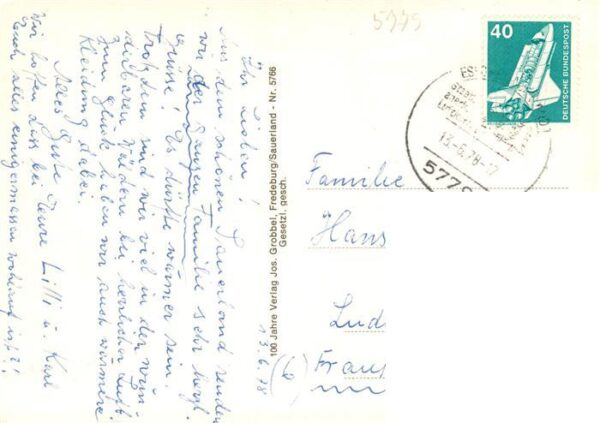 5779
Ihr Lieben!
Aus dem schönen Sauerland senden
wir der ganzen Familie sehr herzl.
Grüsse! Es dürfte wärmer sein.
Trotzdem sind wir viel in den wun-
derbaren Wäldern bei herrlicher Luft.
Zum Glück haben wir auch wärmere
Kleidung dabei.
Alles Gute Eure Lilli u. Karl
Wir hoffen dass bei
Euch alles einigermassen wohlauf ist?!
13.6.78
100 Jahre Verlag Jos. Grobbel, Fredeburg/Sauerland - Nr. 5766
Gesetzl. gesch.
40
DEUTSCHE BUNDESPOST
13.-6.78-17
5779
Familie
Hans
Lud
(6) Fran